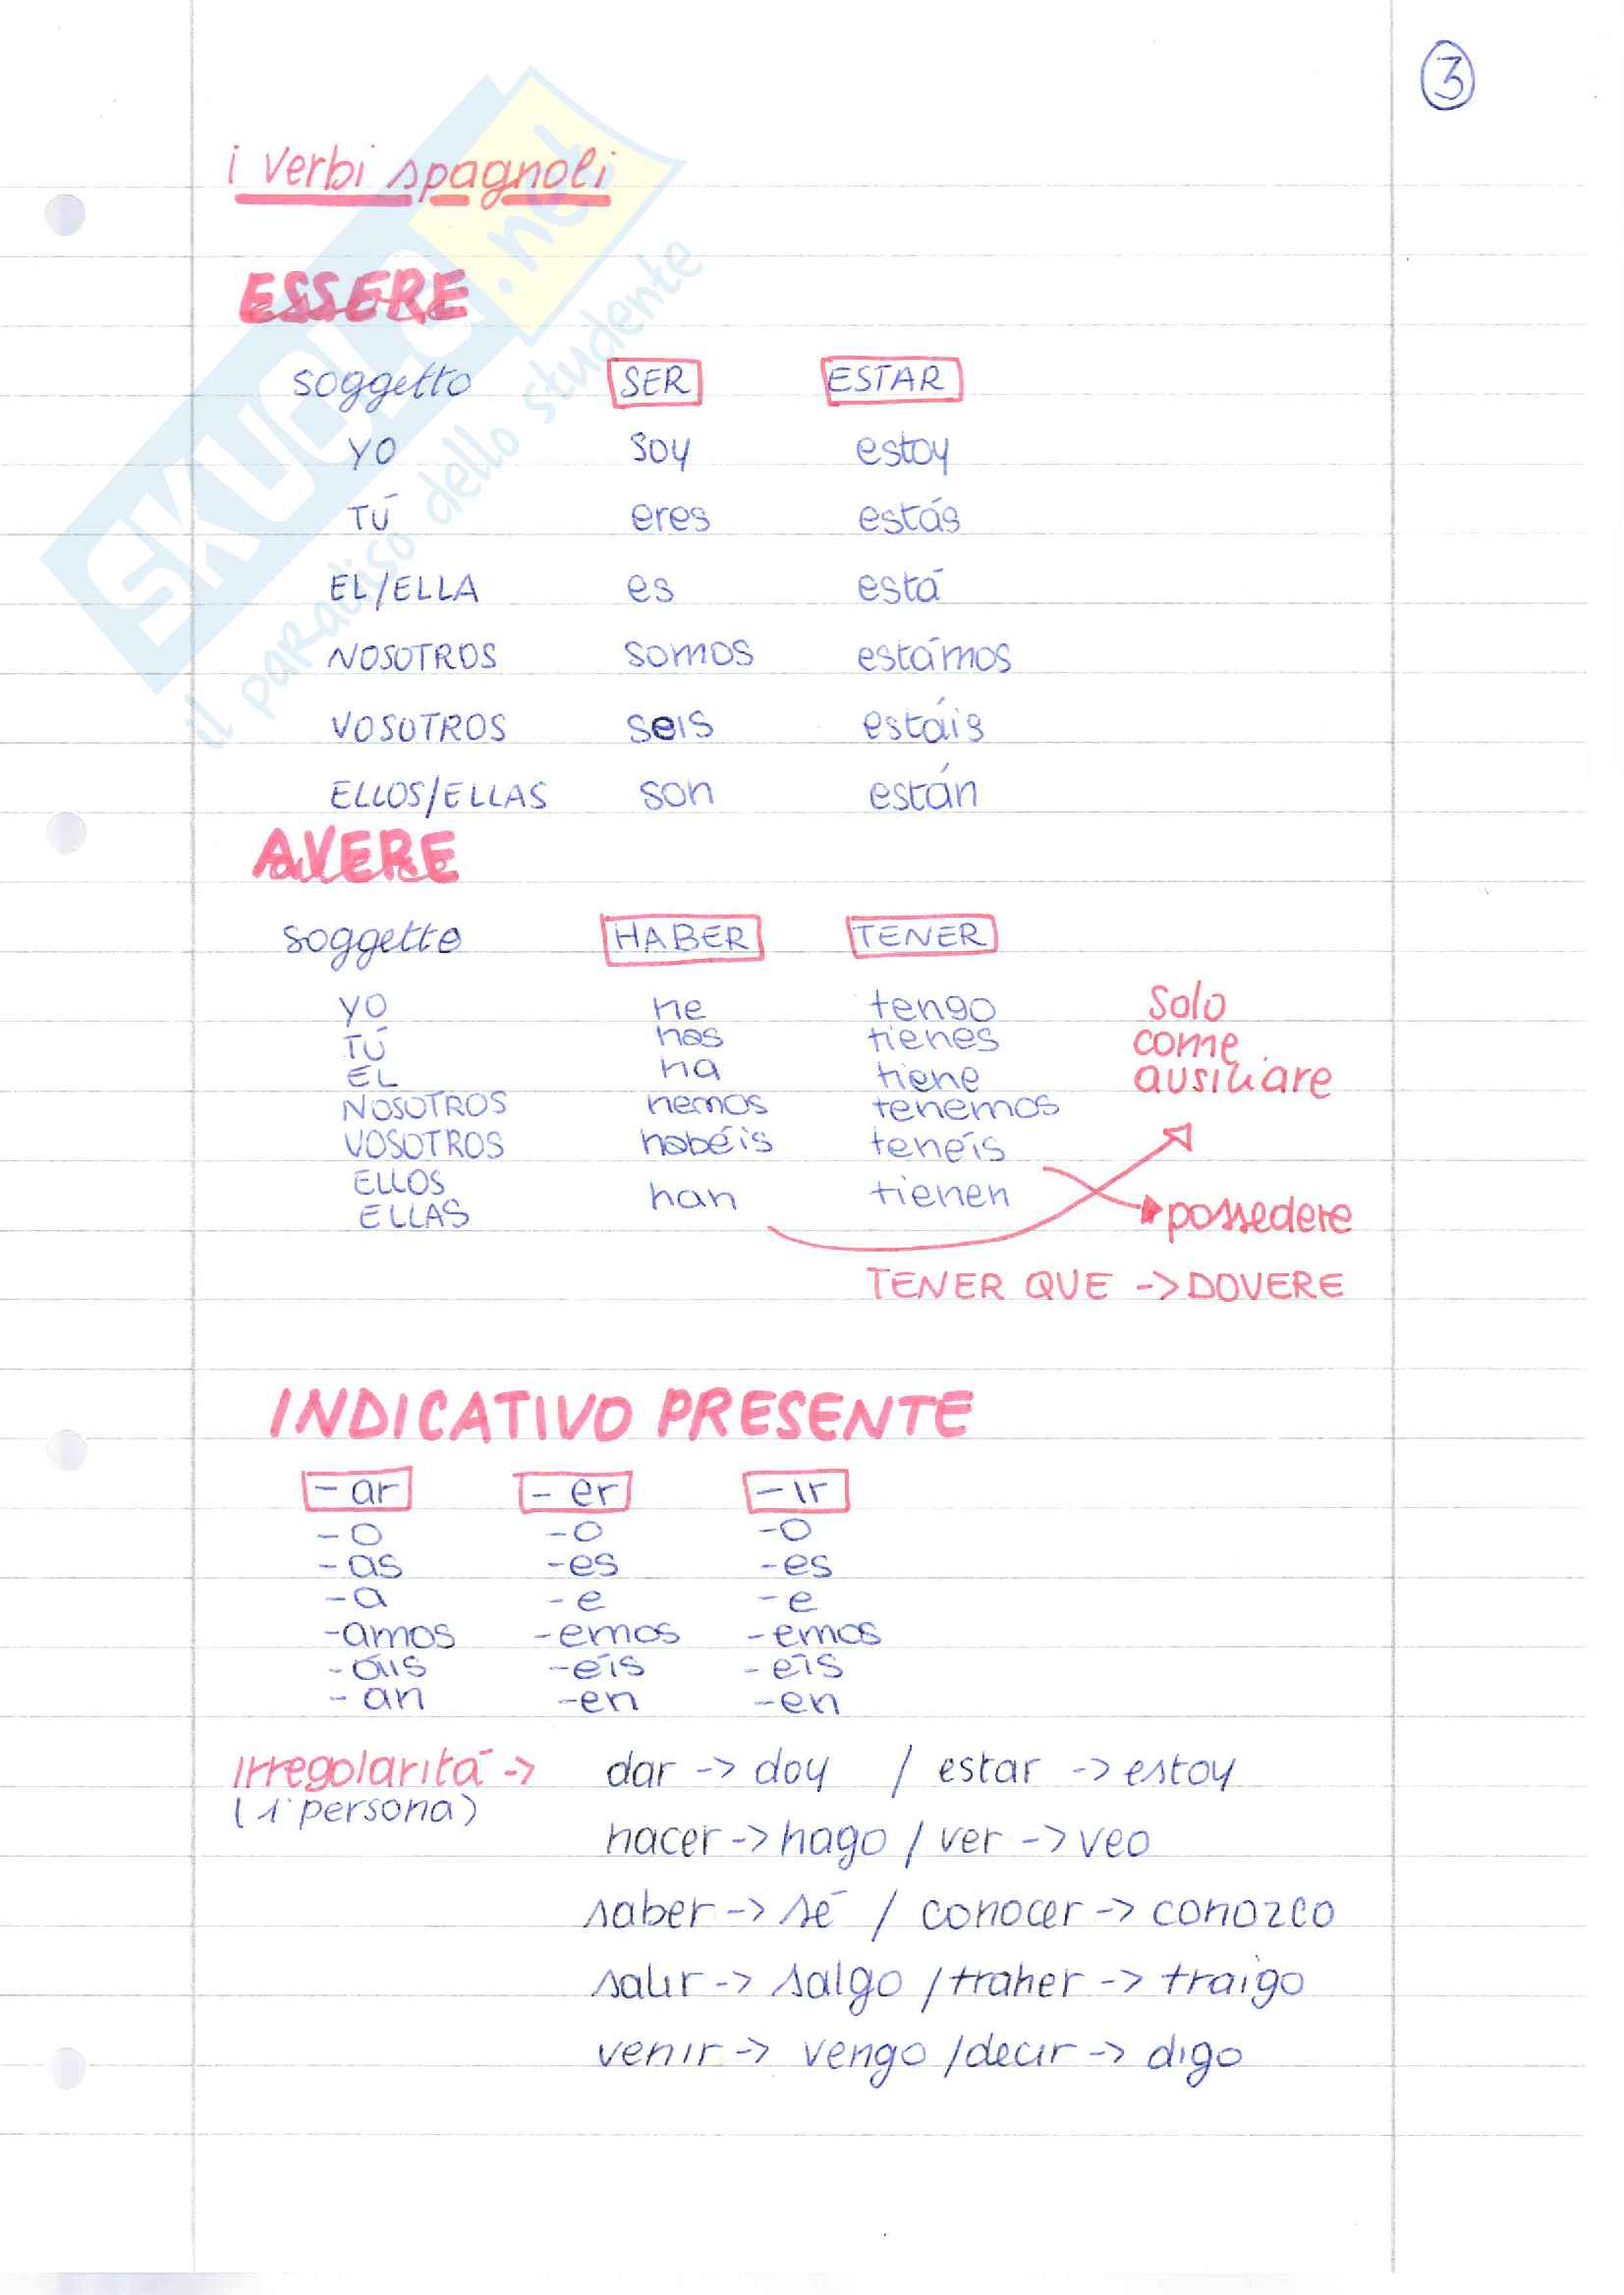 3
i verbi spagnoli
ESSERE
soggetto SER ESTAR
YO soy estoy
TÚ eres estás
EL/ELLA es está
NOSOTROS somos estámos
VOSOTROS seis estáis
ELLOS/ELLAS son están
AVERE
soggetto HABER TENER
YO he tengo solo
TÚ has tienes come
EL ha tiene ausiliare
NOSOTROS hemos tenemos
VOSOTROS habéis tenéis
ELLOS
ELLAS han tienen
possedere
TENER QUE -> DOVERE
INDICATIVO PRESENTE
-ar -er -ir
-o -o -o
-as -es -es
-a -e -e
-amos -emos -emos
-áis -éis -éis
-an -en -en
Irregolaritá -> dar -> doy / estar -> estoy
(1° persona)
hacer -> hago / ver -> veo
saber -> sé / conocer -> conozco
salir -> salgo / traher -> traigo
venir -> vengo / decir -> digo
SKUOLA.net
il paradiso dello studente